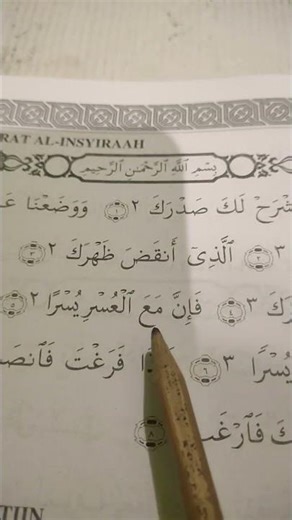 RAT AL-INSYIRAAH
بِسْمِ ٱللَّهِ ٱلرَّحْمَٰنِ ٱلرَّحِيمِ
شْرَحْ لَكَ صَدْرَكَ ٢ ١ وَوَضَعْنَا عَ
٣ ٢ ٱلَّذِىٓ أَنقَضَ ظَهْرَكَ ٢ ٣
رَكَ ٣ ٤ فَإِنَّ مَعَ ٱلْعُسْرِ يُسْرًا ٢ ٥
يُسْرًا ٣ ٦ فَرَغْتَ فَٱنصَ
كَ فَٱرْغَب ٨
TIIN